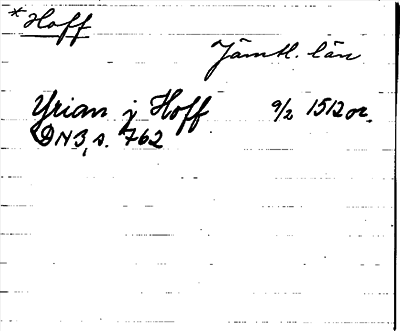 *Hoff
Jämtl. län
Yrian j Hoff 9/2 1512 or.
DN3, s. 762